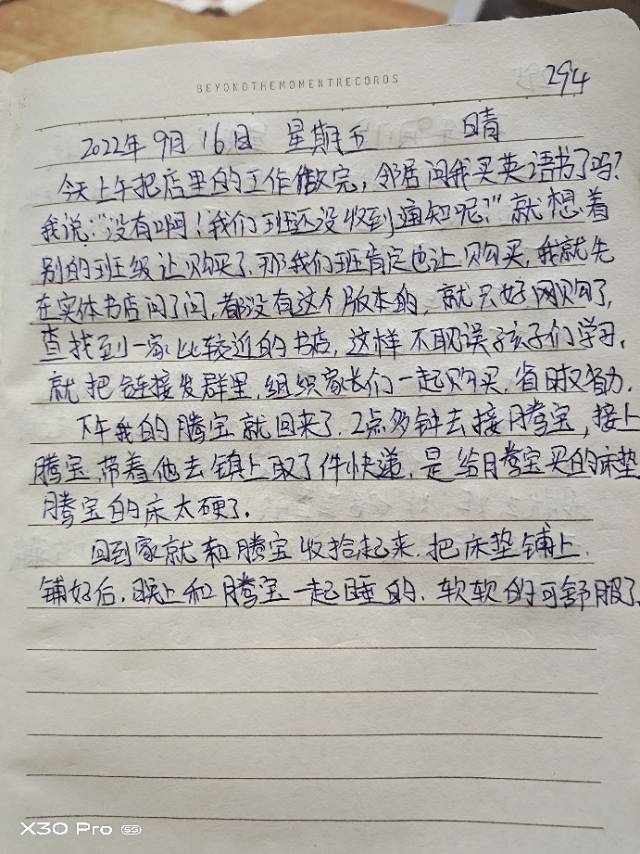 BEYONDTHEMOMENTRECORDS
294
2022年9月16日 星期五 晴
今天上午把店里的工作做完，邻居问我买英语书了吗？
我说："没有啊！我们班还没收到通知呢？"就想着
别的班级让购买了，那我们班肯定也让购买，我就先
在实体书店问了问，都没有这个版本的，就只好网购了，
查找到一家比较近的书店，这样不耽误孩子们学习，
就把链接发群里，组织家长们一起购买，省时又省力．
下午我的腾宝就回来了，2点多钟去接腾宝，接上
腾宝，带着他去镇上取了件快递，是给腾宝买的床垫
腾宝的床太硬了．
回到家就和腾宝收拾起来，把床垫铺上．
铺好后，晚上和腾宝一起睡的，软软的可舒服了．
X30 Pro 5G